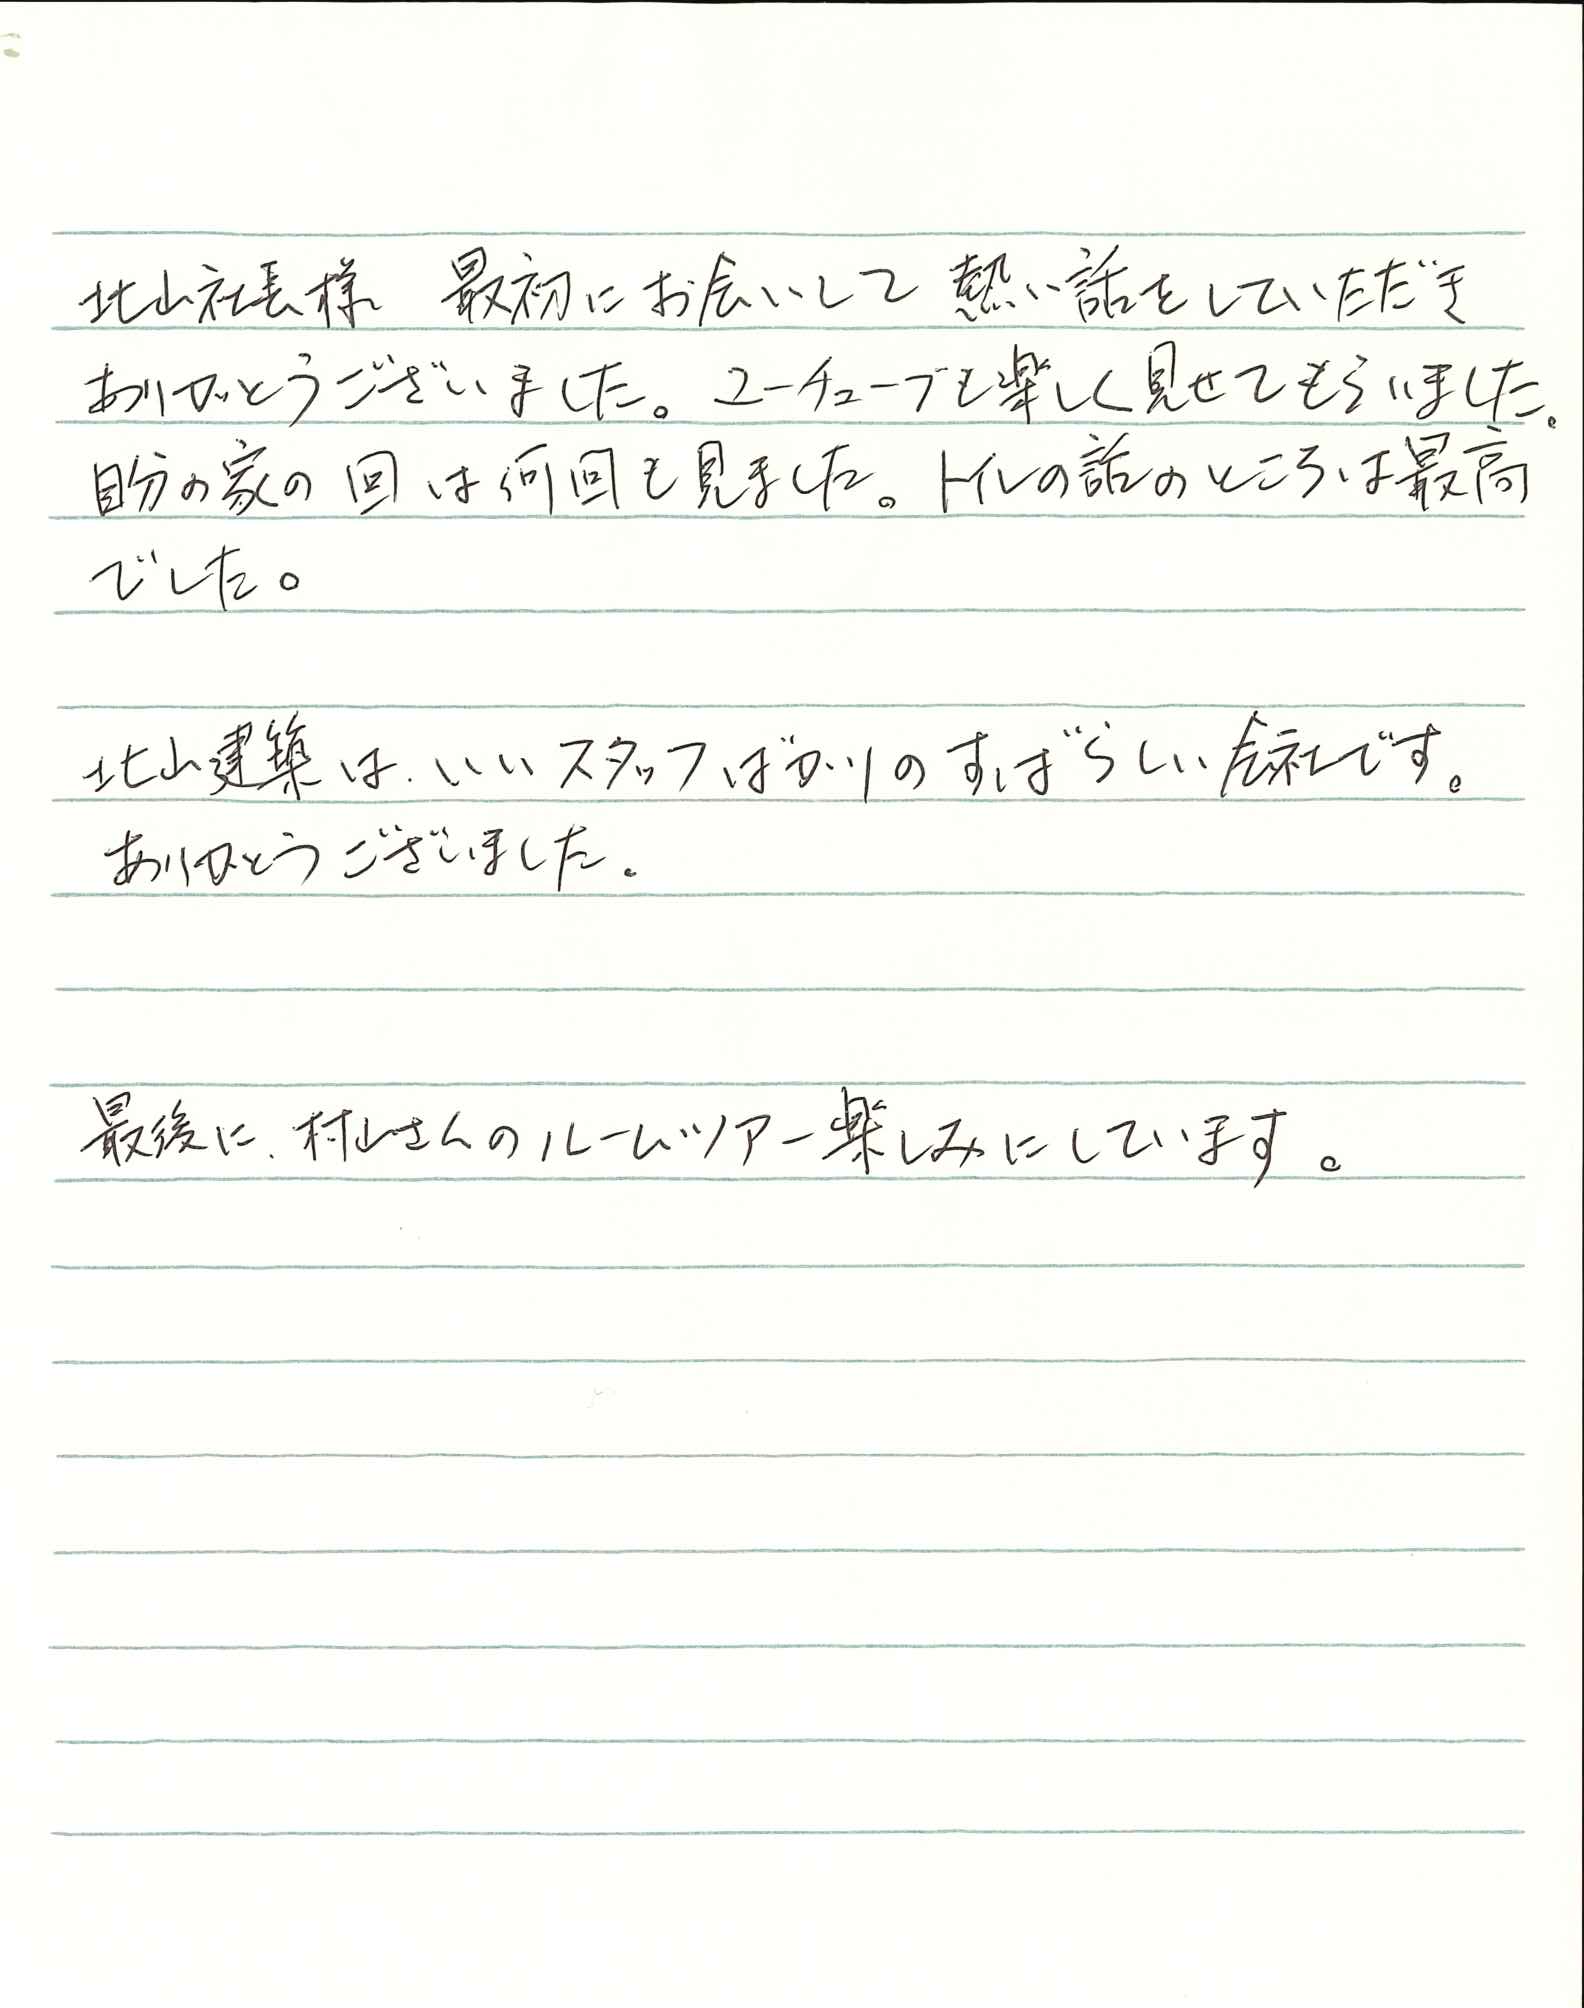 北山社長様 最初にお会いして熱い話をしていただき
ありがとうございました。ユーチューブも楽しく見せてもらいました。
自分の家の回は何回も見ました。トイレの話のところは最高
でした。
北山建築は、いいスタッフばかりのすばらしい会社です。
ありがとうございました。
最後に、村山さんのルームツアー楽しみにしています。